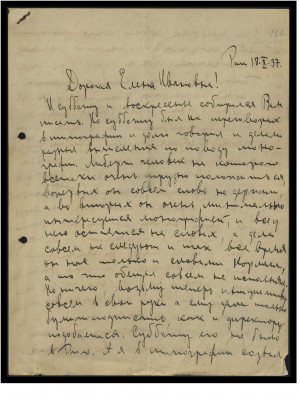 Рига 18.X.37.
Дорогая Елена Ивановна!
И субботу и воскресенье собирался Вам
писать. Но субботу был на переговорах
в типографии и долго говорил и делали
разные вычисления по поводу моно-
графии. человек на которого
всетаки очень трудно полагаться,
во первых он совсем слово не держит,
а во вторых он очень минимально
интересуется монографией, и всё у
него остается на словах, а дела
совсем не следуют и так, всё время
он нас только и словами кормил,
а то что обещал совсем не исполнял.
Но ничего, возьму теперь инициативу
совсем в свои руки а ему дам только
подписывать, как и директору
подобается. Субботу его не было
в Риге. А я в типографии создал